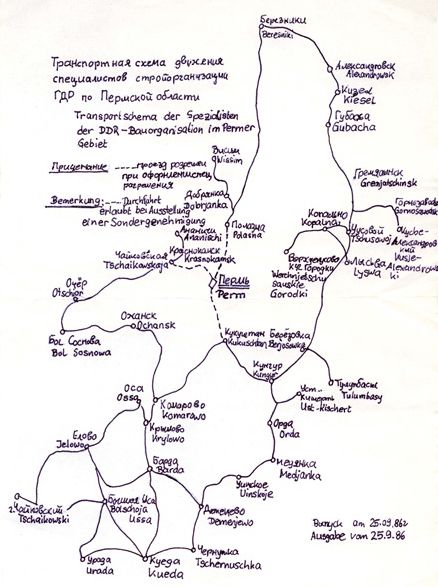 Березники
Beresniki
Транспортная схема движения
специалистов стройорганизации
ГДР по Пермской области
Transportschema der Spezialisten
der DDR-Bauorganisation im Permer
Gebiet
Александровск
Alexandrowsk
Кизел
Kiesel
Губаха
Gubacha
Висим
Wissim
Примечание
---- проезд разрешен
при оформлении спец
разрешения
Добрянка
Dobrjanka
Bemerkung: ---- Durchfahrt
erlaubt bei Ausstellung
einer Sondergenehmigung
Гремячинск
Gremjatschinsk
Горнозаводск
Gornosawodsk
Полазна
Polasna
Ананичи
Ananitschi
Копально
Kopalna
Чусовой
Tschusowoj
Краснокамск
Krasnokamsk
Чайковская
Tschaikowskaja
Лысьва
Lyswa
Городки
Gorodki
Пермь
Perm
Очёр
Otschor
Оханск
Ochansk
Бол Соснова
Bol Sosnowa
Кукуштан
Kukuschtan
Берёзовка
Berjosowka
Кунгур
Kungur
Тулумбасы
Tulumbasy
Уст-
Кишерть
Ust-Kischert
Оса
Ossa
Комарово
Komarowo
Крылово
Krylowo
Орда
Orda
Елово
Jelowo
Барда
Barda
Медянка
Medjanka
Уинское
Uinskoje
г. Чайковский
Tschaikowski
Большая Уса
Bolschoja
Ussa
Деменево
Demenjewo
Урада
Urada
Куеда
Kueda
Чернушка
Tschernuschka
Выпуск am 25.09.86г
Ausgabe vom 25.9.86